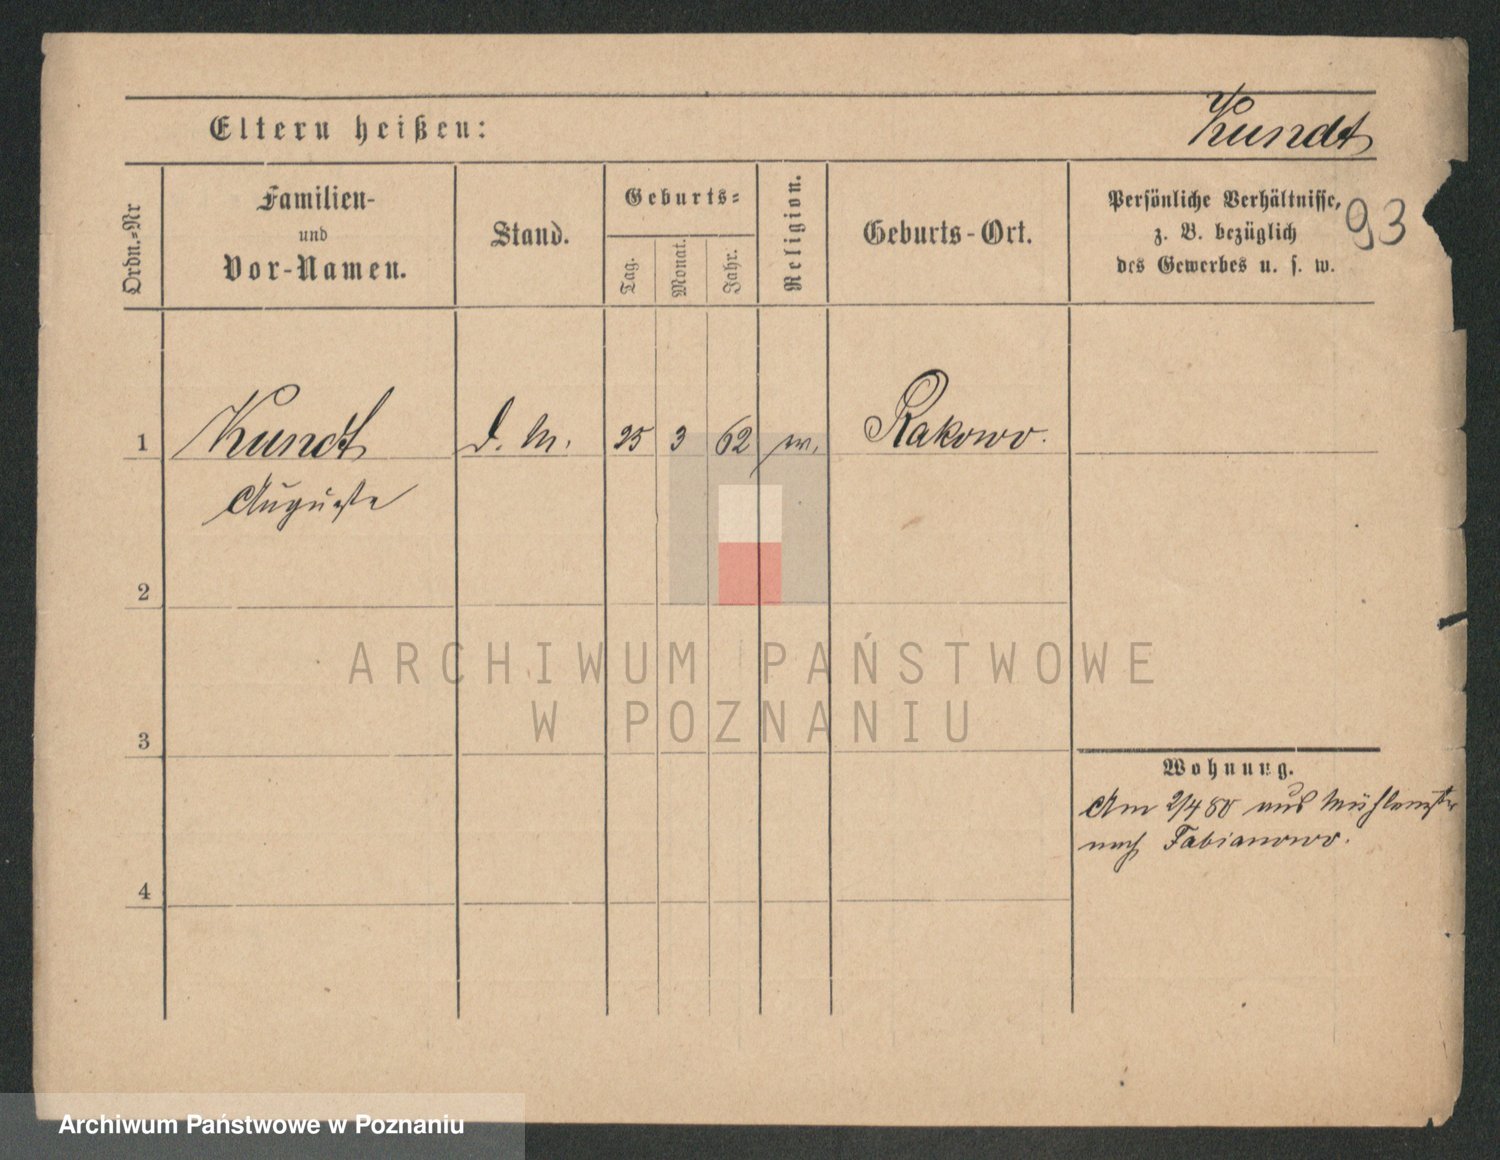 Eltern heißen:
Kundt
Ordn.-Nr
Familien-
und
Vor-Namen.
Stand.
Geburts-
Tag.
Monat.
Jahr.
Religion.
Geburts-Ort.
Persönliche Verhältnisse,
z. B. bezüglich
des Gewerbes u. s. w.
93
1
Kundt
D. M.
25
3
62
w.
Rakowo.
Auguste
2
ARCHIWUM PAŃSTWOWE
W POZNANIU
3
Wohnung.
Am 2/4 80 aus Mühlenstr
nach Fabianowo.
4
Archiwum Państwowe w Poznaniu